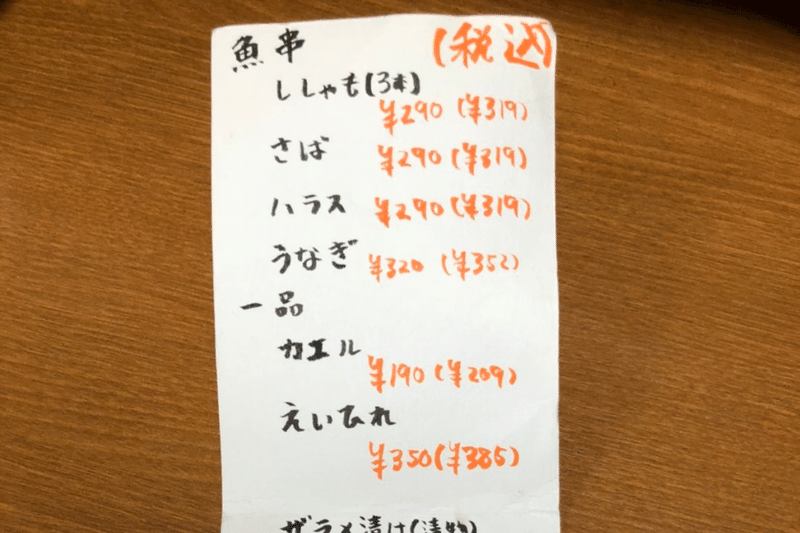 魚串 (税込)
ししゃも(3本)
¥290 (¥319)
さば ¥290 (¥319)
ハラス ¥290 (¥319)
うなぎ ¥320 (¥352)
一品
カエル
¥190 (¥209)
えいひれ
¥350 (¥385)
ザラメ漬け(漬物)